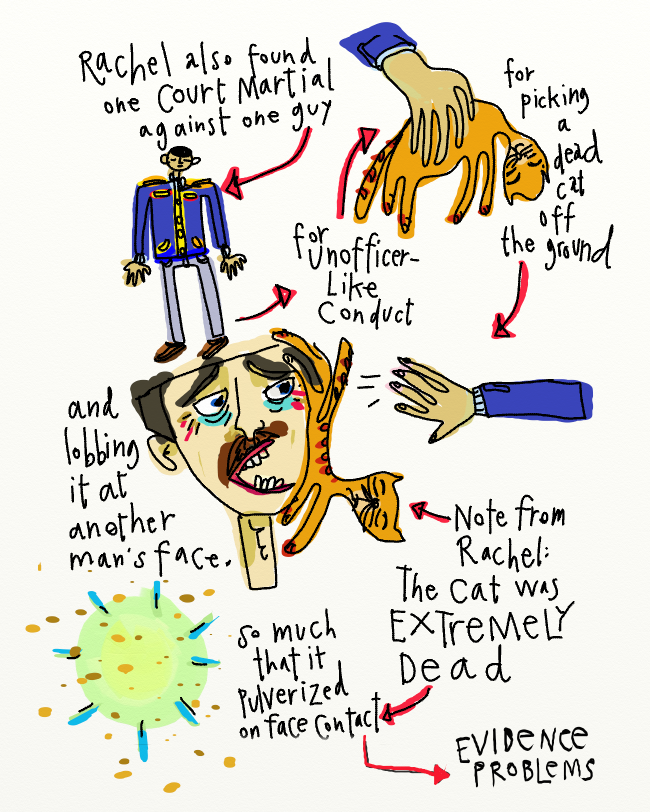 Rachel also found
one Court Martial
against one guy
for Unofficer-
Like
Conduct
for
picking
a
dead
cat
off
the ground
and
lobbing
it at
another
man's face.
Note from
Rachel:
The Cat was
EXTREMELY
Dead
so much
that it
pulverized
on face contact
EVIDENCE
PROBLEMS